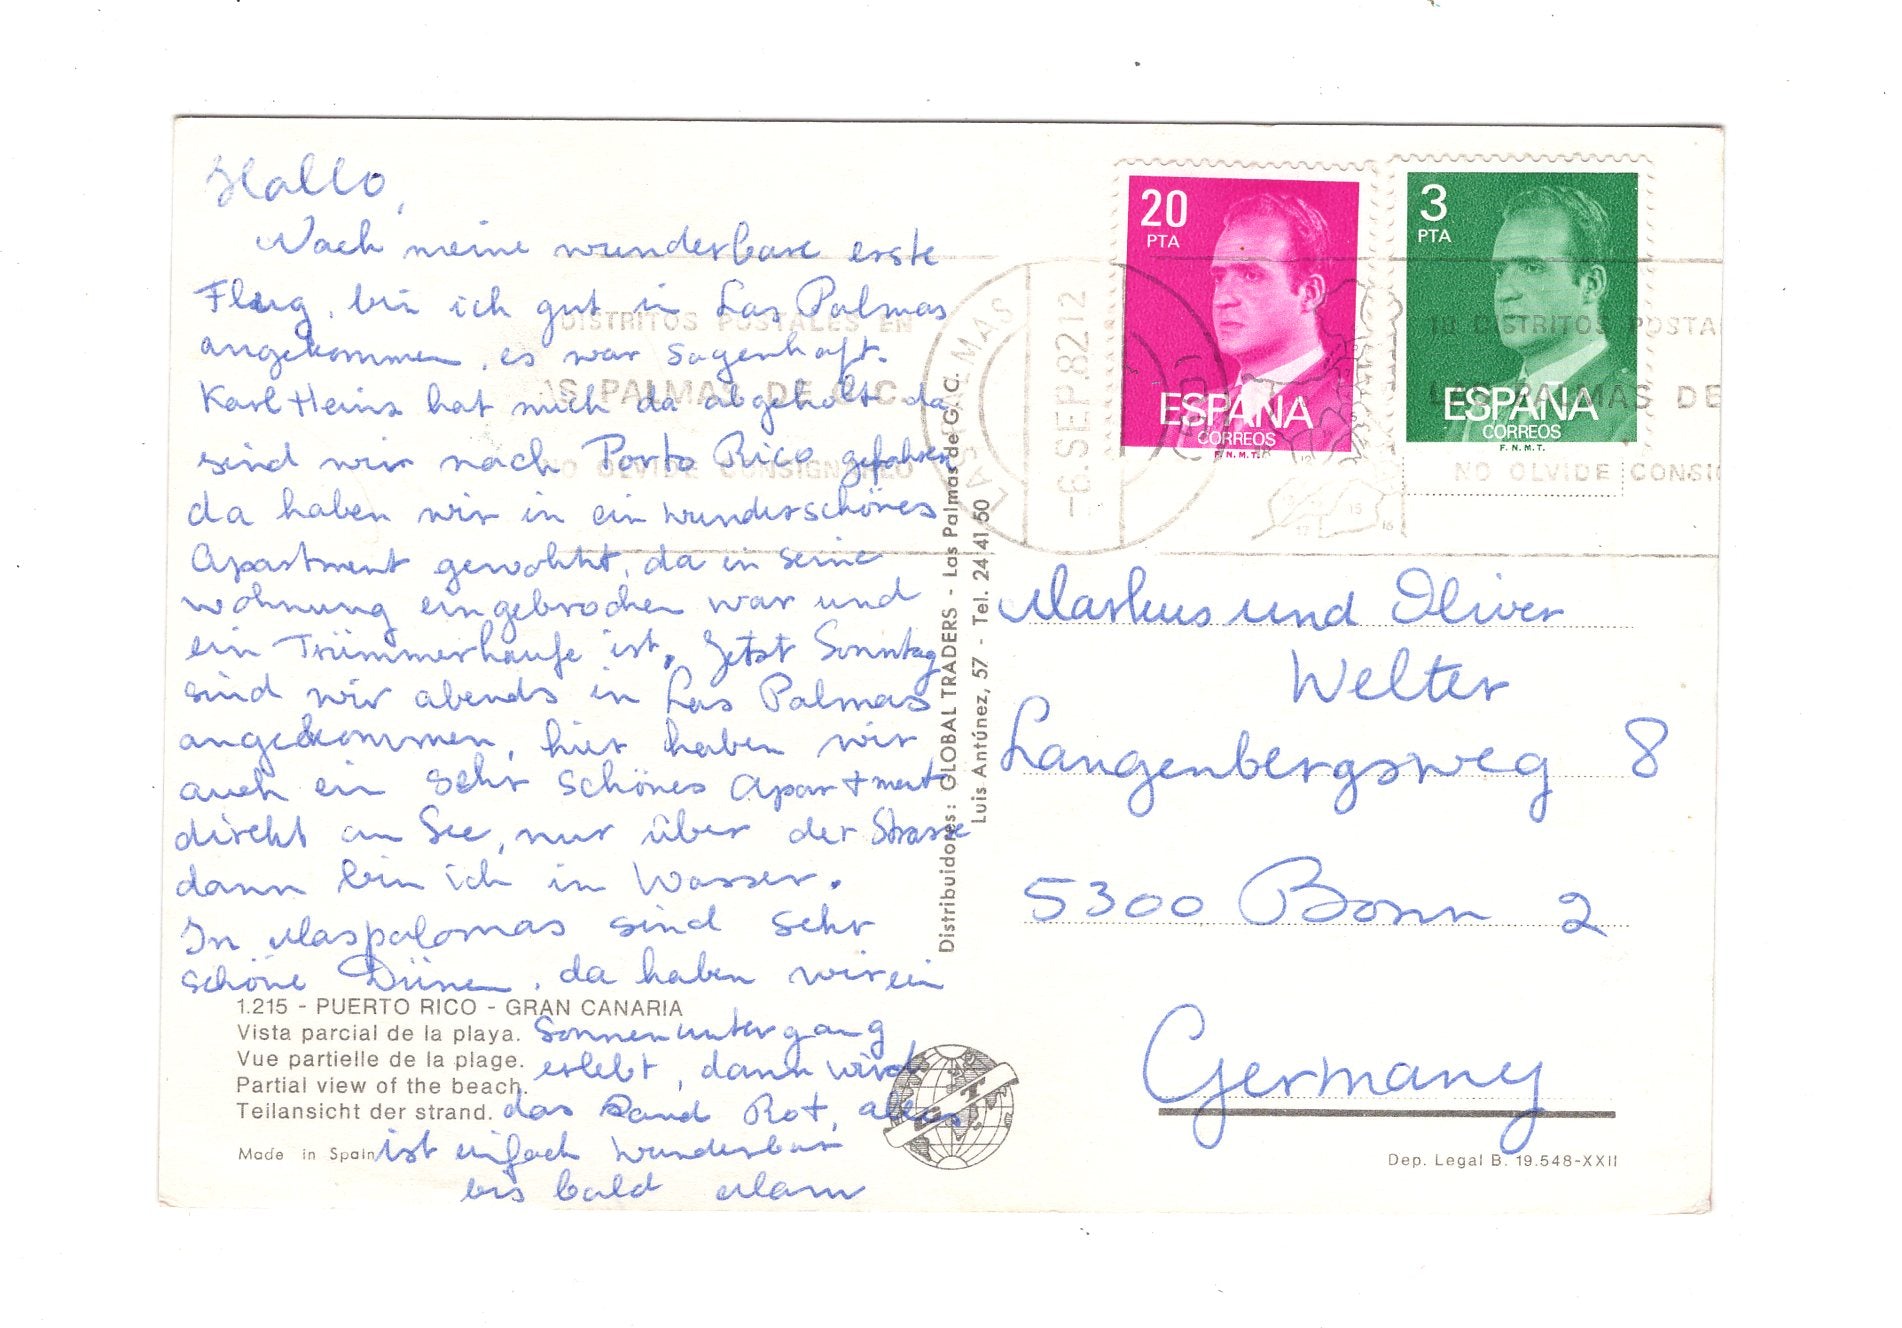 Hallo,
Nach meine wunderbare erste
Flug, bin ich gut in Las Palmas
angekommen, es war sagenhaft.
Karl Heinz hat mich da abgeholt da
sind wir nach Porto Rico gefahren
da haben wir in ein wunderschönes
Apartment gewohnt, da in seine
wohnung eingebrochen war und
ein Trümmerhaufe ist, Jetzt Sonntag
sind wir abends in Las Palmas
angekommen, hier haben wir
auch ein sehr schönes Apartment
direkt an See, nur über der Strasse
dann bin ich in Wasser.
In Maspalomas sind sehr
schöne Dünen, da haben wir ein
Sonnenuntergang
erlebt, dann wird
das Sand Rot, alles
ist einfach wunderbar
bis bald Mam
1.215 - PUERTO RICO - GRAN CANARIA
Vista parcial de la playa.
Vue partielle de la plage.
Partial view of the beach.
Teilansicht der strand.
Made in Spain
Distribuidores: GLOBAL TRADERS - Las Palmas de G.C.
Luis Antúnez, 57 - Tel. 24 41 50
DISTRITOS POSTALES EN
AS PALMAS DE G.C.
NO OLVIDE CONSIGNARLO
LAS PALMAS
-6.SEP.82 12
20
PTA
ESPAÑA
CORREOS
F.N.M.T.
3
PTA
ESPAÑA
CORREOS
F.N.M.T.
DISTRITOS POSTA
LAS PALMAS DE
NO OLVIDE CONSI
Markus und Oliver
Welter
Langenbergsweg 8
5300 Bonn 2
Germany
Dep. Legal B. 19.548-XXII